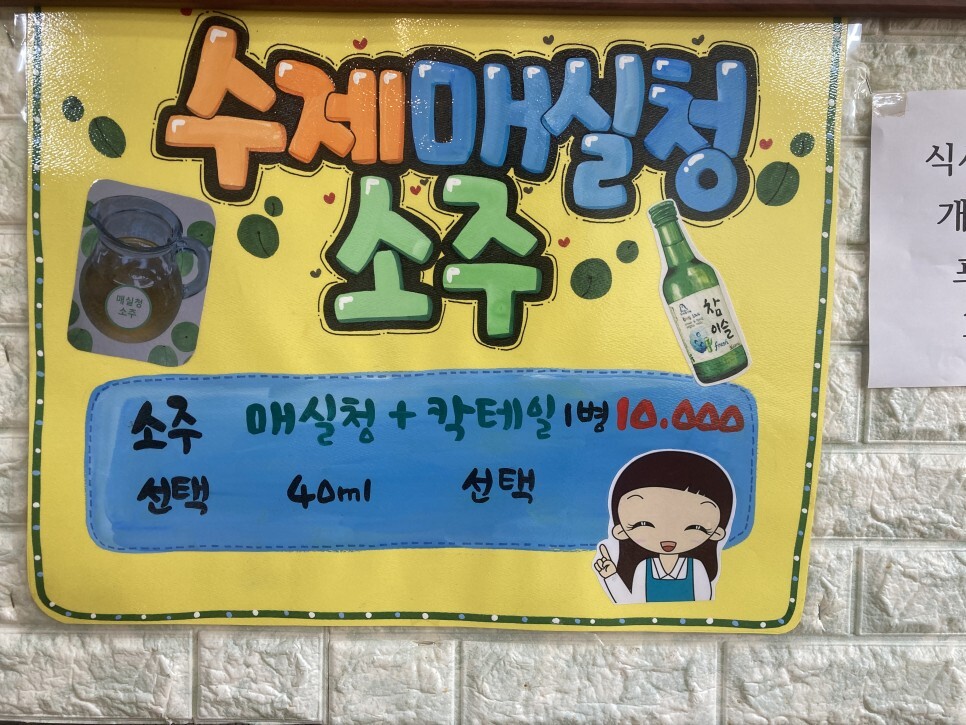 수제매실청
소주
매실청
소주
참
이슬
fresh
소주 매실청 + 칵테일 1병 10.000
선택 40ml 선택
식
개